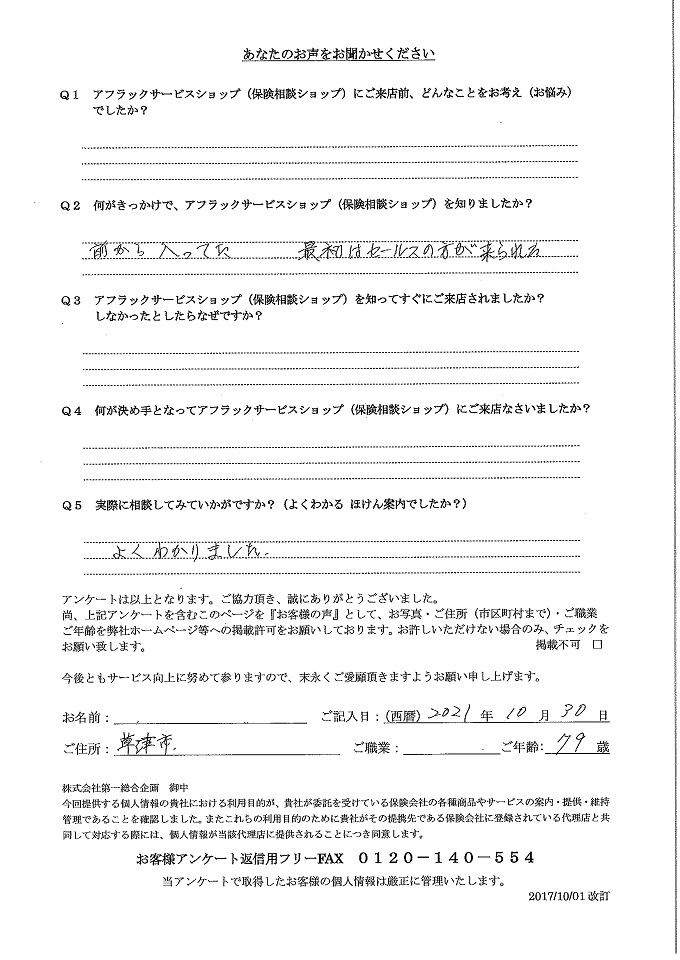 あなたのお声をお聞かせください
Q1 アフラックサービスショップ（保険相談ショップ）にご来店前、どんなことをお考え（お悩み）
でしたか？
Q2 何がきっかけで、アフラックサービスショップ（保険相談ショップ）を知りましたか？
前から入ってた 最初はセールスの方が来られた
Q3 アフラックサービスショップ（保険相談ショップ）を知ってすぐにご来店されましたか？
しなかったとしたらなぜですか？
Q4 何が決め手となってアフラックサービスショップ（保険相談ショップ）にご来店なさいましたか？
Q5 実際に相談してみていかがですか？（よくわかる ほけん案内でしたか？）
よくわかりました.
アンケートは以上となります。ご協力頂き、誠にありがとうございました。
尚、上記アンケートを含むこのページを『お客様の声』として、お写真・ご住所（市区町村まで）・ご職業
ご年齢を弊社ホームページ等への掲載許可をお願いしております。お許しいただけない場合のみ、チェックを
お願い致します。 掲載不可 □
今後ともサービス向上に努めて参りますので、末永くご愛顧頂きますようお願い申し上げます。
お名前： ご記入日：(西暦) 2021 年 10 月 30 日
ご住所： 草津市. ご職業： ご年齢： 79 歳
株式会社第一総合企画 御中
今回提供する個人情報の貴社における利用目的が、貴社が委託を受けている保険会社の各種商品やサービスの案内・提供・維持
管理であることを確認しました。またこれらの利用目的のために貴社がその提携先である保険会社に登録されている代理店と共
同して対応する際には、個人情報が当該代理店に提供されることにつき同意します。
お客様アンケート返信用フリーFAX 0120－140－554
当アンケートで取得したお客様の個人情報は厳正に管理いたします。
2017/10/01 改訂